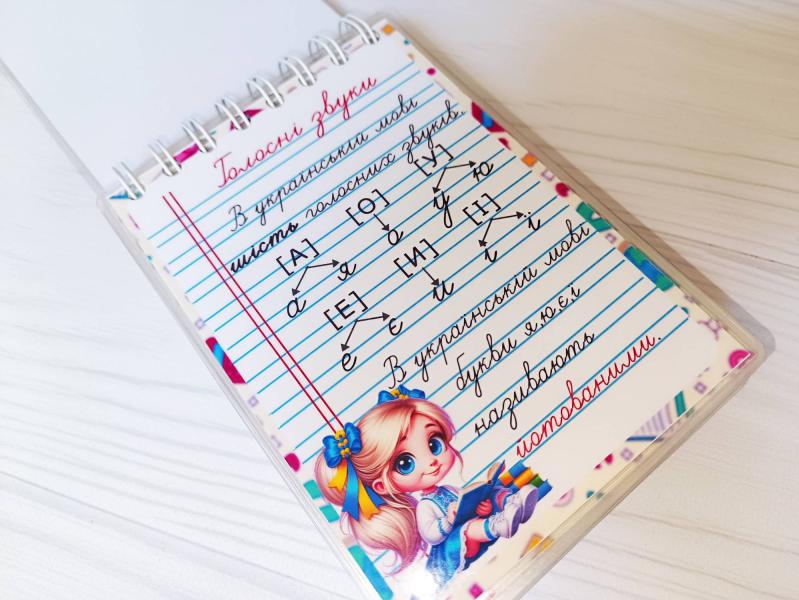 Голосні звуки
В українській мові
шість голосних звуків.
[А] [О] [У]
а я о у ю
[Е] [И] [І]
е є и і ї
В українській мові
букви я,ю,є,ї
називають
йотованими.